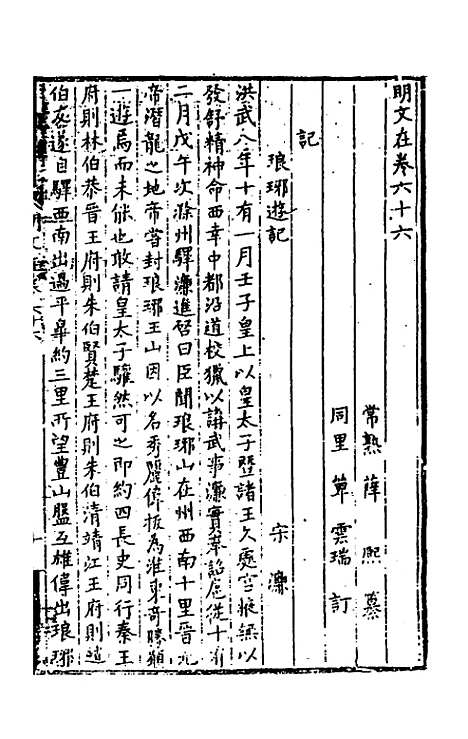 明文在卷六十六
常熟 薛熙 纂
同里 單雲瑞 訂
記
琅琊遊記 宋濂
洪武八年十有一月壬子皇上以皇太子暨諸王久處宮掖無以
發舒精神命西幸中都沿道校獵以講武事濂實奉詔扈從十有
二月戊午次滁州驛濂進啓曰臣聞琅琊山在州西南十里晉元
帝潛龍之地帝嘗封琅琊王山因以名秀麗偉拔為淮東奇勝願
一遊焉而未能也敢請皇太子驩然可之即約四長史同行秦王
府則林伯恭晉王府則朱伯賢楚王府則朱伯清靖江王府則趙
伯友遂自驛西南出過平皋約三里所望豐山盤亙雄偉出琅琊